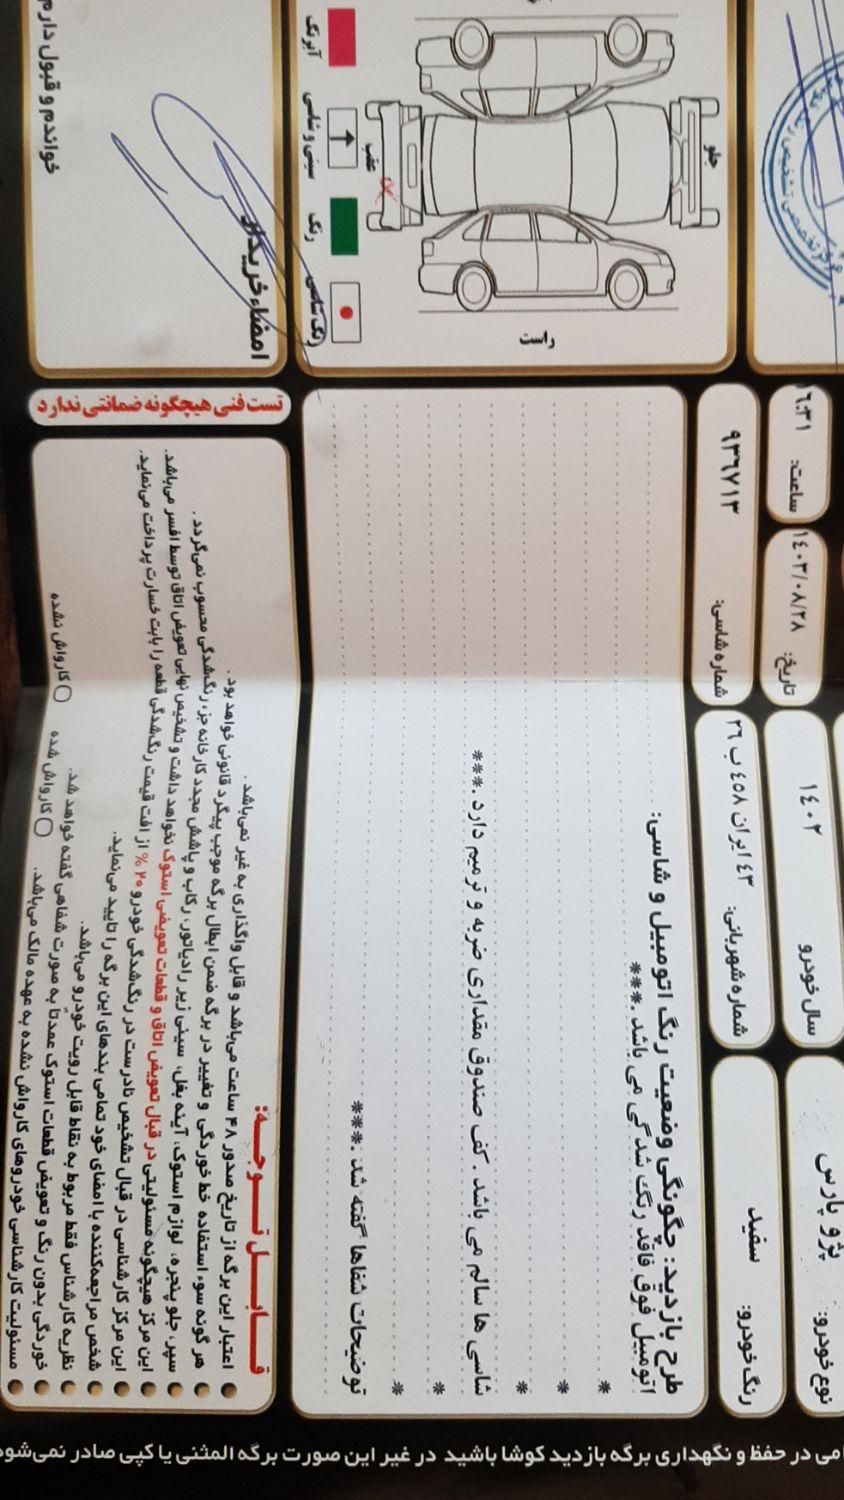 نوع خودرو: پژو پارس
سال خودرو ١٤٠٢
تاریخ: ١٤٠٣/٠٨/٢٨
ساعت: ١٦:٣١
رنگ خودرو: سفید
شماره شهربانی: ٤٣ ایران ٤٥٨ ب ٢٦
شماره شاسی: ٩٣٦٧١٣
طرح بازدید: چگونگی وضعیت رنگ اتومبیل و شاسی:
اتومبیل فوق فاقد رنگ شدگی می باشد .***
*
*
*
شاسی ها سالم می باشد . کف صندوق مقداری ضربه و ترمیم دارد .***
*
*
توضیحات شفاها گفته شد .***
جلو
عقب
راست
آبرنگ
سینی و شاسی
رنگ
رنگ شاسی
تست فنی هیچگونه ضمانتی ندارد
قابل توجه:
اعتبار این برگه از تاریخ صدور ۴۸ ساعت می‌باشد و قابل واگذاری به غیر نمی‌باشد .
هر گونه سوء استفاده خط خوردگی و تغییر در برگه ضمن ابطال برگه موجب پیگرد قانونی خواهد بود .
سپر، جلو پنجره، لوازم استوک، آینه بغل، سینی زیر رادیاتور، رکاب و پاشش مجدد کارخانه جزء رنگ‌شدگی محسوب نمی‌گردد .
این مرکز هیچگونه مسئولیتی در قبال تعویض اتاق و قطعات تعویضی استوک نخواهد داشت و تشخیص نهایی تعویض اتاق توسط افسر می‌باشد.
این مرکز کارشناسی در قبال تشخیص نادرست در رنگ‌شدگی خودرو ۲۰ % از افت قیمت رنگ‌شدگی قطعه را بابت خسارت پرداخت می‌نماید.
شخص مراجعه‌کننده با امضای خود تمامی بندهای این برگه را تایید می‌نماید.
نظریه کارشناس فقط مربوط به نقاط قابل رویت خودرو می‌باشد.
خوردگی بدون رنگ و تعویض قطعات استوک عمدتا به صورت شفاهی گفته خواهد شد.
مسئولیت کارشناسی خودروهای کارواش نشده به عهده مالک می‌باشد.
کارواش شده
کارواش نشده
امضاء خریدار
خواندم و قبول دارم
در حفظ و نگهداری برگه بازدید کوشا باشید در غیر این صورت برگه المثنی یا کپی صادر نمی‌شود